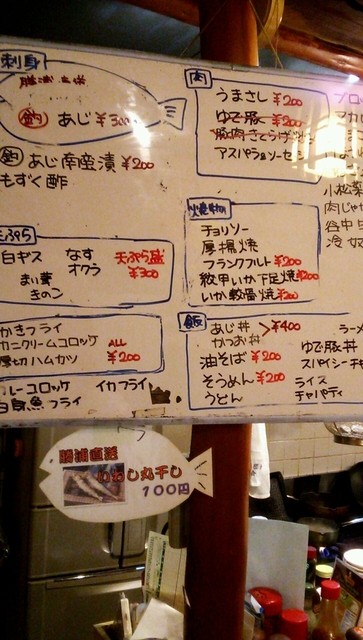 刺身
勝浦直送
釣 あじ ¥300
釣 あじ南蛮漬 ¥200
もずく酢
天ぷら
白ギス なす 天ぷら盛
オクラ ¥300
まい茸
きのこ
かきフライ
カニクリームコロッケ ALL
厚切ハムカツ ¥200
カレーコロッケ イカフライ
白身魚フライ
肉
うまさし ¥200
ゆで豚 ¥200
アスパラ&ソーセー
焼物
チョリソー
厚揚焼
フランクフルト ¥200
紋甲いか下足焼 ¥200
いか軟骨焼 ¥200
飯
あじ丼 > ¥400
かつお丼
油そば ¥200
そうめん ¥200
うどん
ゆで豚丼
スパイシーチキ
ライス
チャパティ
小松菜
肉じゃ
谷中
冷奴
勝浦直送
いわし丸干し
100円